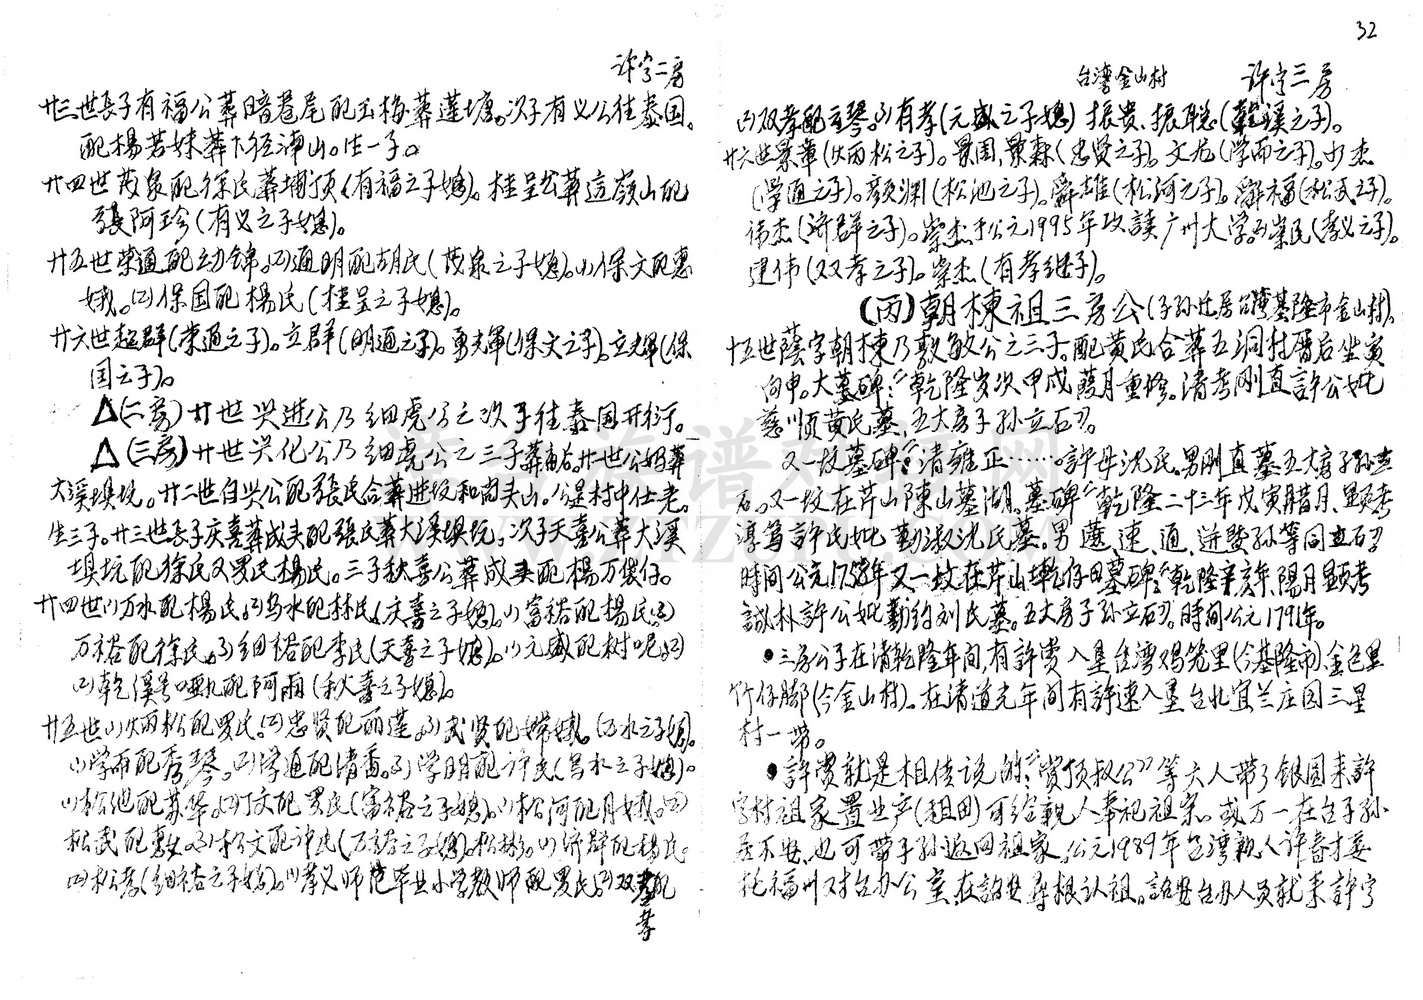 许字二房
廿三世長子有福公葬暗巷尾配玉梅葬蓮塘。次子有义公往泰国。
配楊若妹葬下径湳山。生一子。
廿四世茂泉配徐氏葬埔顶(有福之子媳)。桂呈公葬這嶺山配
張阿珍(有义之子媳)。
廿五世荣通配幼锦。(2)通明配胡氏(茂泉之子媳)。(1)保文配惠
娥。(2)保国配楊氏(桂呈之子媳)。
廿六世超群(荣通之子)。立群(明通之子)。勇輝(保文之子)。立輝(保
国之子)。
△(二房)廿世兴进公乃细虎公之次子往泰国开衍。
△(三房)廿世兴化公乃细虎公之三子葬 廿世公妈葬
大溪埧坑。廿二世自兴公配張氏合葬进坟和尚头山。公是村中仕老。
生三子。廿三世長子庆喜葬成头配張氏葬大溪埧坑。次子天喜公葬大溪
埧坑配徐氏又罗氏楊氏。三子秋喜公葬成头配楊万仔。
廿四世(1)万水配楊氏。(2)乌水配林氏(庆喜之子媳)。(1)富禄配楊氏。(2)
万禄配徐氏。(3)细禄配李氏(天喜之子媳)。(1)元盛配树呢。(2)
(2)乾溪是哑巴配阿雨(秋喜之子媳)。
廿五世(1)炳松配罗氏。(2)忠贤配丽莲。(3)武贤配嫦娥。(万水之子媳)。
(1)学而配秀琴。(2)学通配清香。(3)学明配许氏(乌水之子媳)。
(1)松池配苏华。(2)丁文配罗氏(富禄之子媳)。(1)松河配月娥。(2)
松武配惠 (3)松文配许氏(万禄之子媳)。松彬。(1)济群配楊氏。
(2)松孝(细禄之子媳)。(1)孝义师范毕业小学教师配罗氏。(2)双孝配
32
台湾金山村 许字三房
(2)双孝配玉琴。(3)有孝(元盛之子媳)振贵、振聪。(乾溪之子)。
廿六世景華(炳松之子)。景国、景森(忠贤之子)。文龙(学而之子)。少杰
(学通之子)。颜渊(松池之子)。舜雄(松河之子)。舜福(松武之子)。
福杰(济群之子)。崇杰于公元1995年攻读广州大学。(2)崇民(孝义之子)。
建伟(双孝之子)。崇杰(有孝继子)。
(丙)朝棟祖三房公(子孙迁居台湾基隆市金山村)。
十五世蔭字朝棟乃敦敏公之三子。配黄氏合葬五洞村厝后坐寅
向申。大墓碑:“乾隆岁次甲戌葭月重修。清考刚直許公妣
慈順黄氏墓,五大房子孙立石”。
又一坟墓碑“清雍正……。許母沈氏。男刚直墓五大房子孙立
石。又一坟在芹山陳山墓湖。墓碑“乾隆二十三年戊寅腊月、显考
淳笃許氏妣勤淑沈氏墓。男遷、速、通、进暨孙等同立石”
時间公元1758年又一坟在芹山乾仔田墓碑:“乾隆辛亥年陽月显考
誠朴許公妣勤约刘氏墓。五大房子孙立石”。時间公元1791年。
●三房公子在清乾隆年间,有許賨入垦台湾鸡笼里(今基隆市)、金包里
竹仔脚(今金山村)。在清道光年间有許速入垦台北宜兰庄园三星
村一带。
●許賨就是相传说的:“賨顶叔公”等六人带了银圆来許
字村祖家置业产(租田)可给親人奉祀祖宗。或万一在台子孙
居不安,也可带子孙返回祖家,公元1989年台湾親人许春才委
托福州对台办公室在詔安尋根认祖。詔安台办人员就来許字